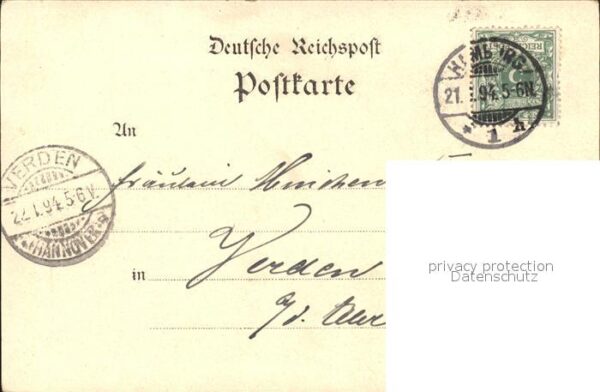 Deutsche Reichspost
Postkarte
HAMBURG
21. 1. 94. 5-6N.
* 1 h
An
VERDEN
22.1.94.5-6N.
(HANNOVER)
Fräulein
in Verden
a/d. Aller
privacy protection
Datenschutz